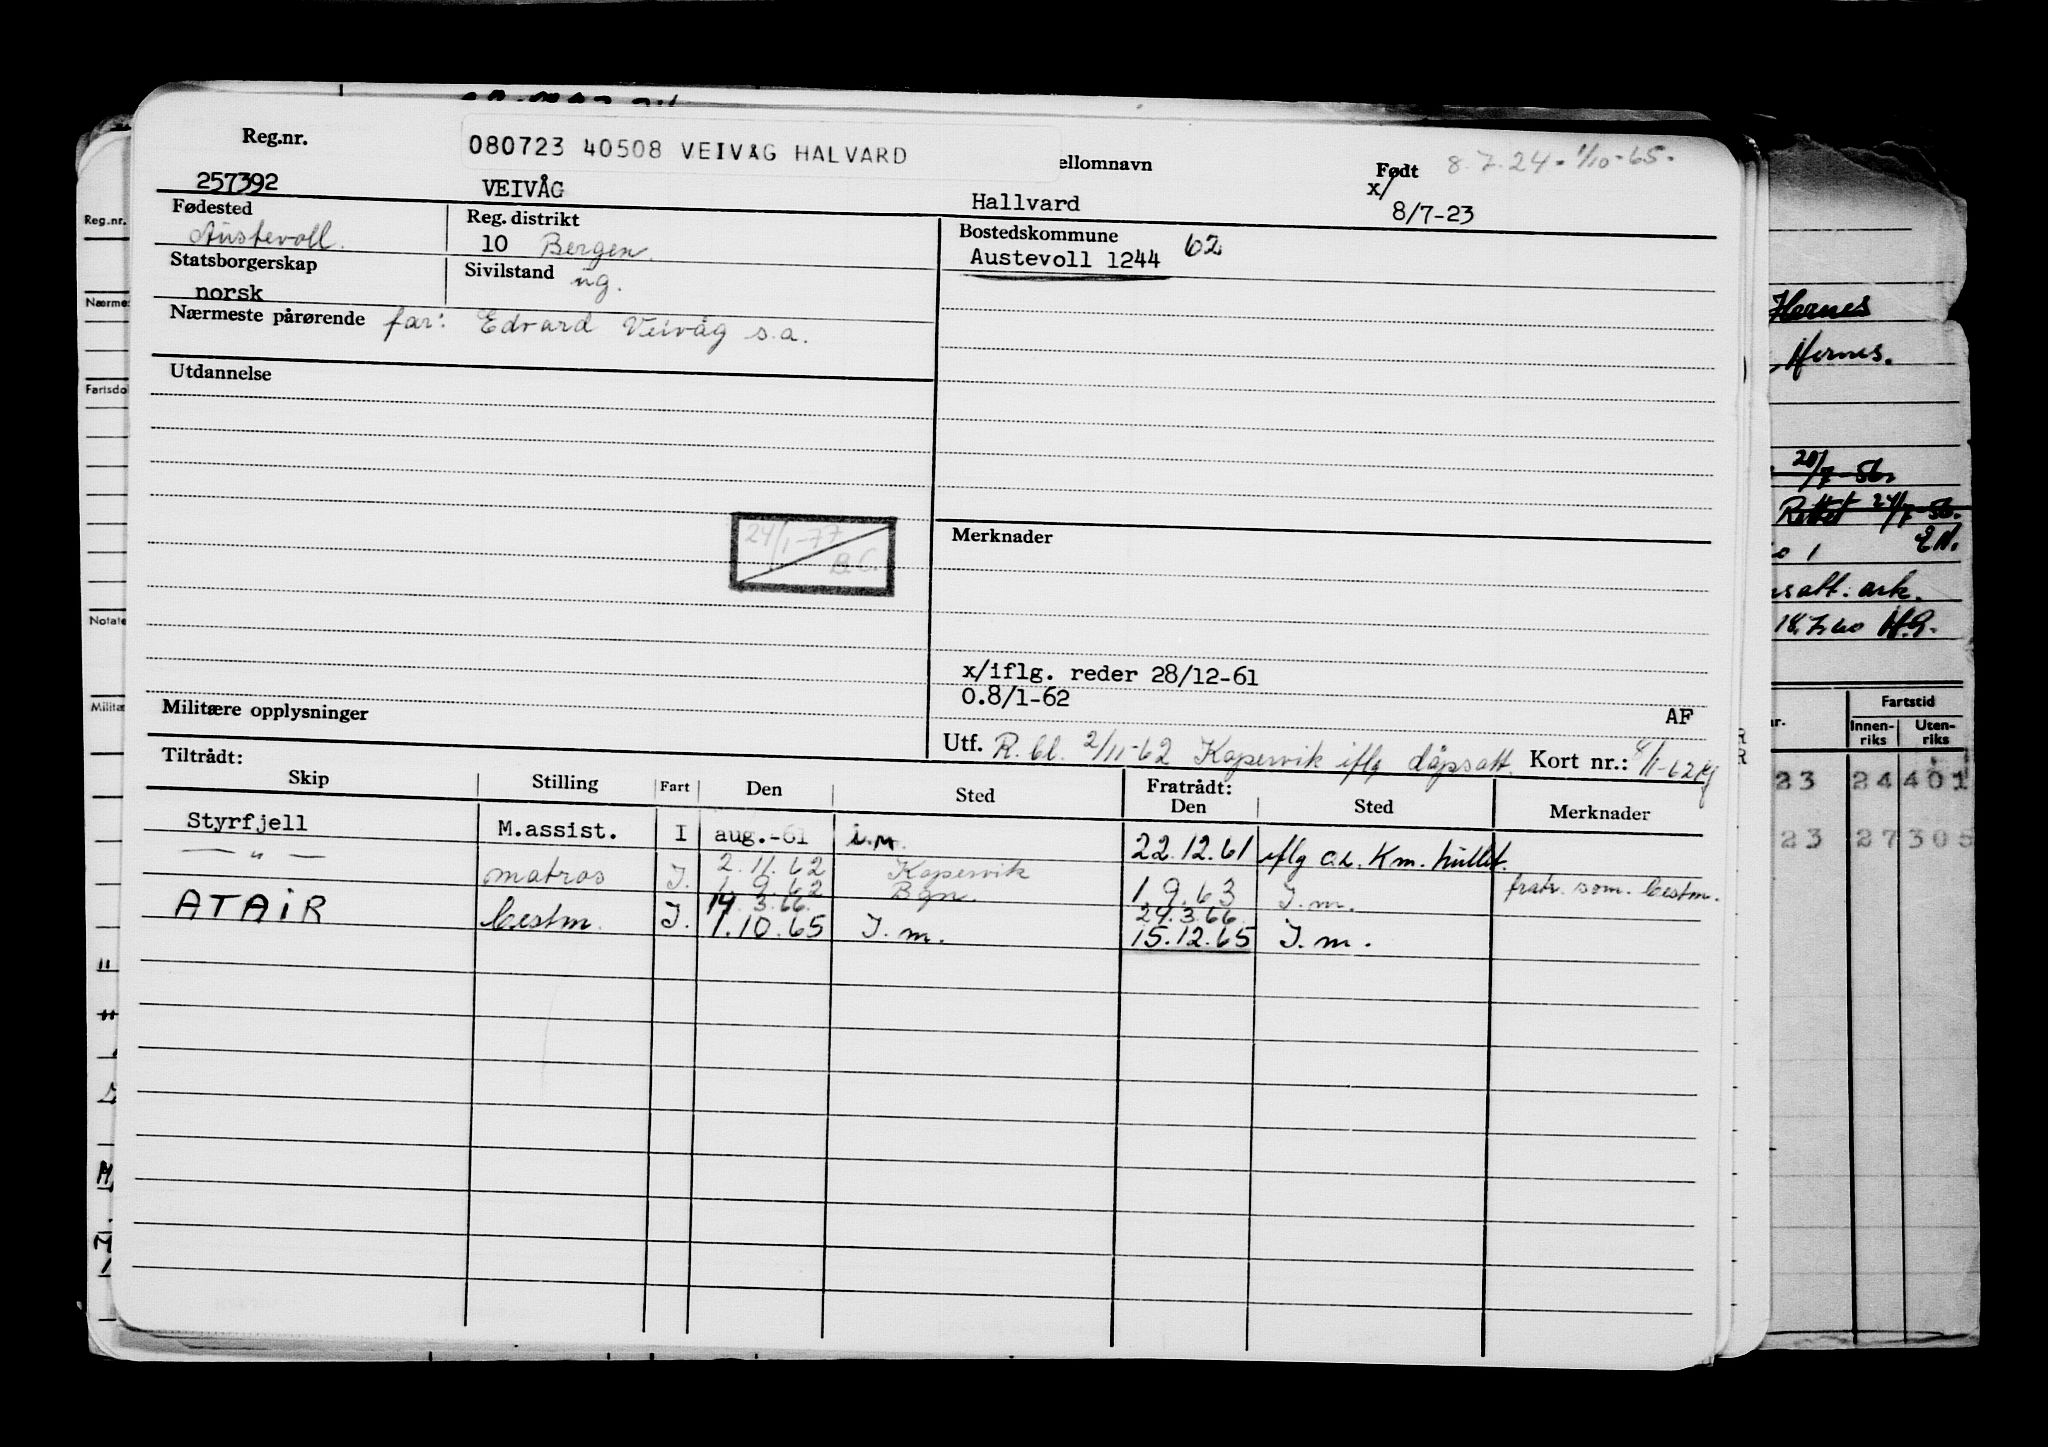 Reg.nr.
080723 40508 VEIVÅG HALVARD
ellomnavn
Født 8.7.24. 1/10-65.
257392
VEIVÅG
Hallvard
x/
8/7-23
Fødested
Austevoll.
Reg. distrikt
10 Bergen.
Bostedskommune
Austevoll 1244 62
Statsborgerskap
norsk
Sivilstand ug.
Nærmeste pårørende far: Edvard Veivåg s.a.
Utdannelse
24/1-77
B.C.
Merknader
x/iflg. reder 28/12-61
0.8/1-62
AF
Militære opplysninger
Utf. R. bl. 2/11-62 Kopervik iflg dåpsatt. Kort nr.:
Tiltrådt:
Skip Stilling Fart Den Sted Fratrådt: Den Sted Merknader
Styrfjell M.assist. I aug.-61 i.m. 22.12.61 iflg a.h. Km. hullet.
— " — matros I. 2.11.62 Kopervik
1.9.62 Bgn. 1.9.63 I.m. fratr. som. bestm.
14.3.66. 24.3.66.
ATAIR bestm. I. 1.10.65 I.m. 15.12.65 I.m.
Reg.nr.
Nærmes
Fartsdo
Notate
Militæ
Hernes
Hernes.
20/7-56.
Rettet 24/7-56.
E.N.
satt. ark.
18.7.60 H.G.
Fartstid
Innen-
riks
Uten-
riks
23 24 401
23 27 305